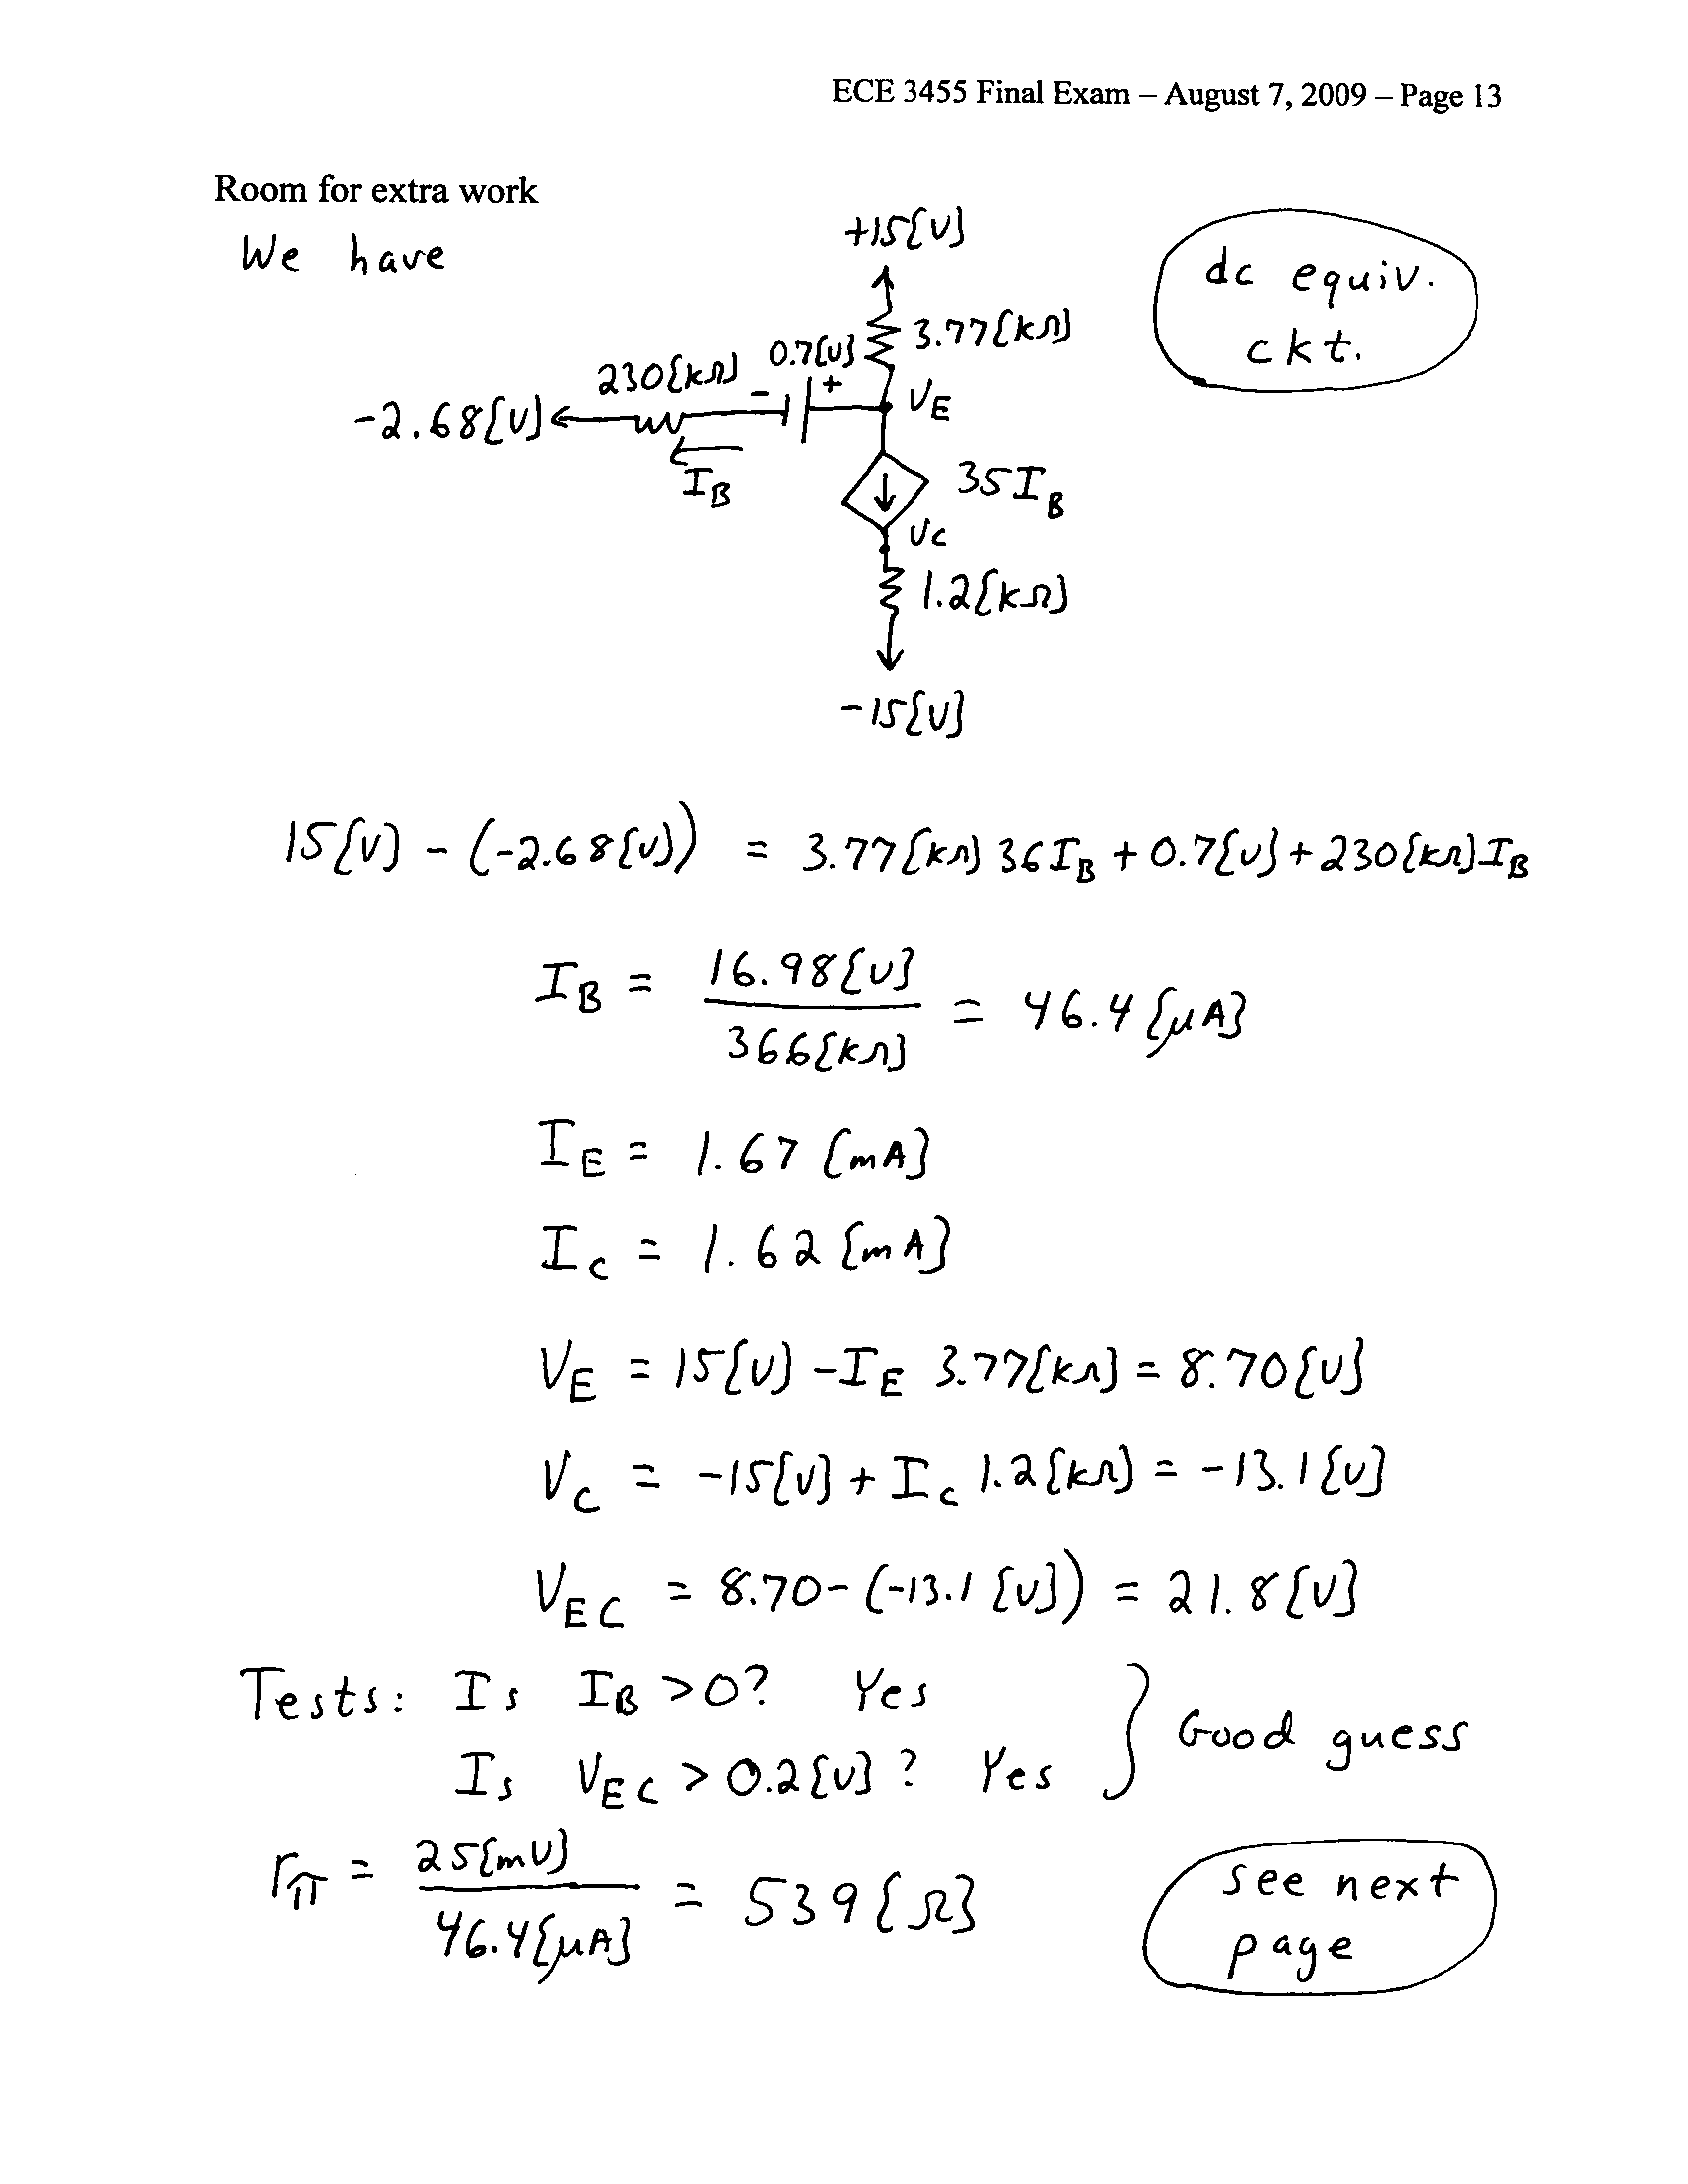 ECE 3455 Final Exam – August 7, 2009 – Page 13
Room for extra work
We have
+15[V]
dc equiv.
ckt.
3.77[kΩ]
0.7[V]
230[kΩ]
- +
-2.68[V]
VE
IB
35IB
VC
1.2[kΩ]
-15[V]
15[V] - (-2.68[V]) = 3.77[kΩ] 36IB + 0.7[V] + 230[kΩ]IB
IB = 16.98[V] / 366[kΩ] = 46.4[μA]
IE = 1.67 [mA]
IC = 1.62 [mA]
VE = 15[V] - IE 3.77[kΩ] = 8.70[V]
VC = -15[V] + IC 1.2[kΩ] = -13.1[V]
VEC = 8.70 - (-13.1 [V]) = 21.8[V]
Tests: Is IB > 0? Yes
Is VEC > 0.2[V]? Yes
} Good guess
rπ = 25[mV] / 46.4[μA] = 539[Ω]
see next
page